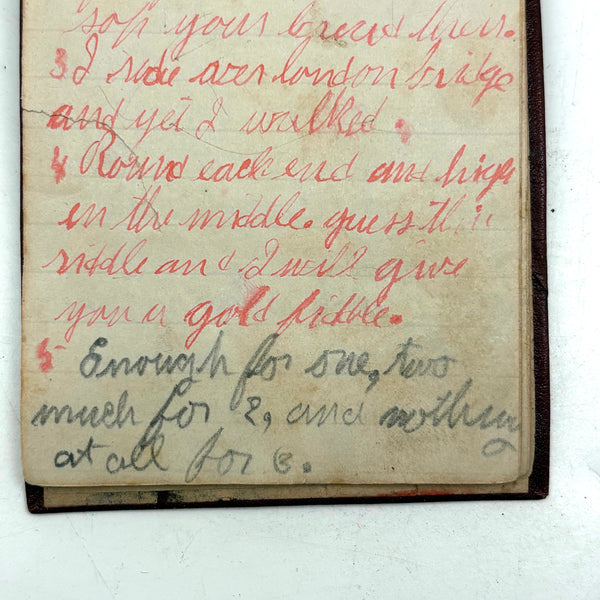 sop your bread their.
3 I ride over london bridge
and yet I walked.
4 Round each end and high
in the middle. guess this
riddle and I will give
you a gold fiddle.
5 Enough for one, two
much for 2, and nothing
at all for 3.